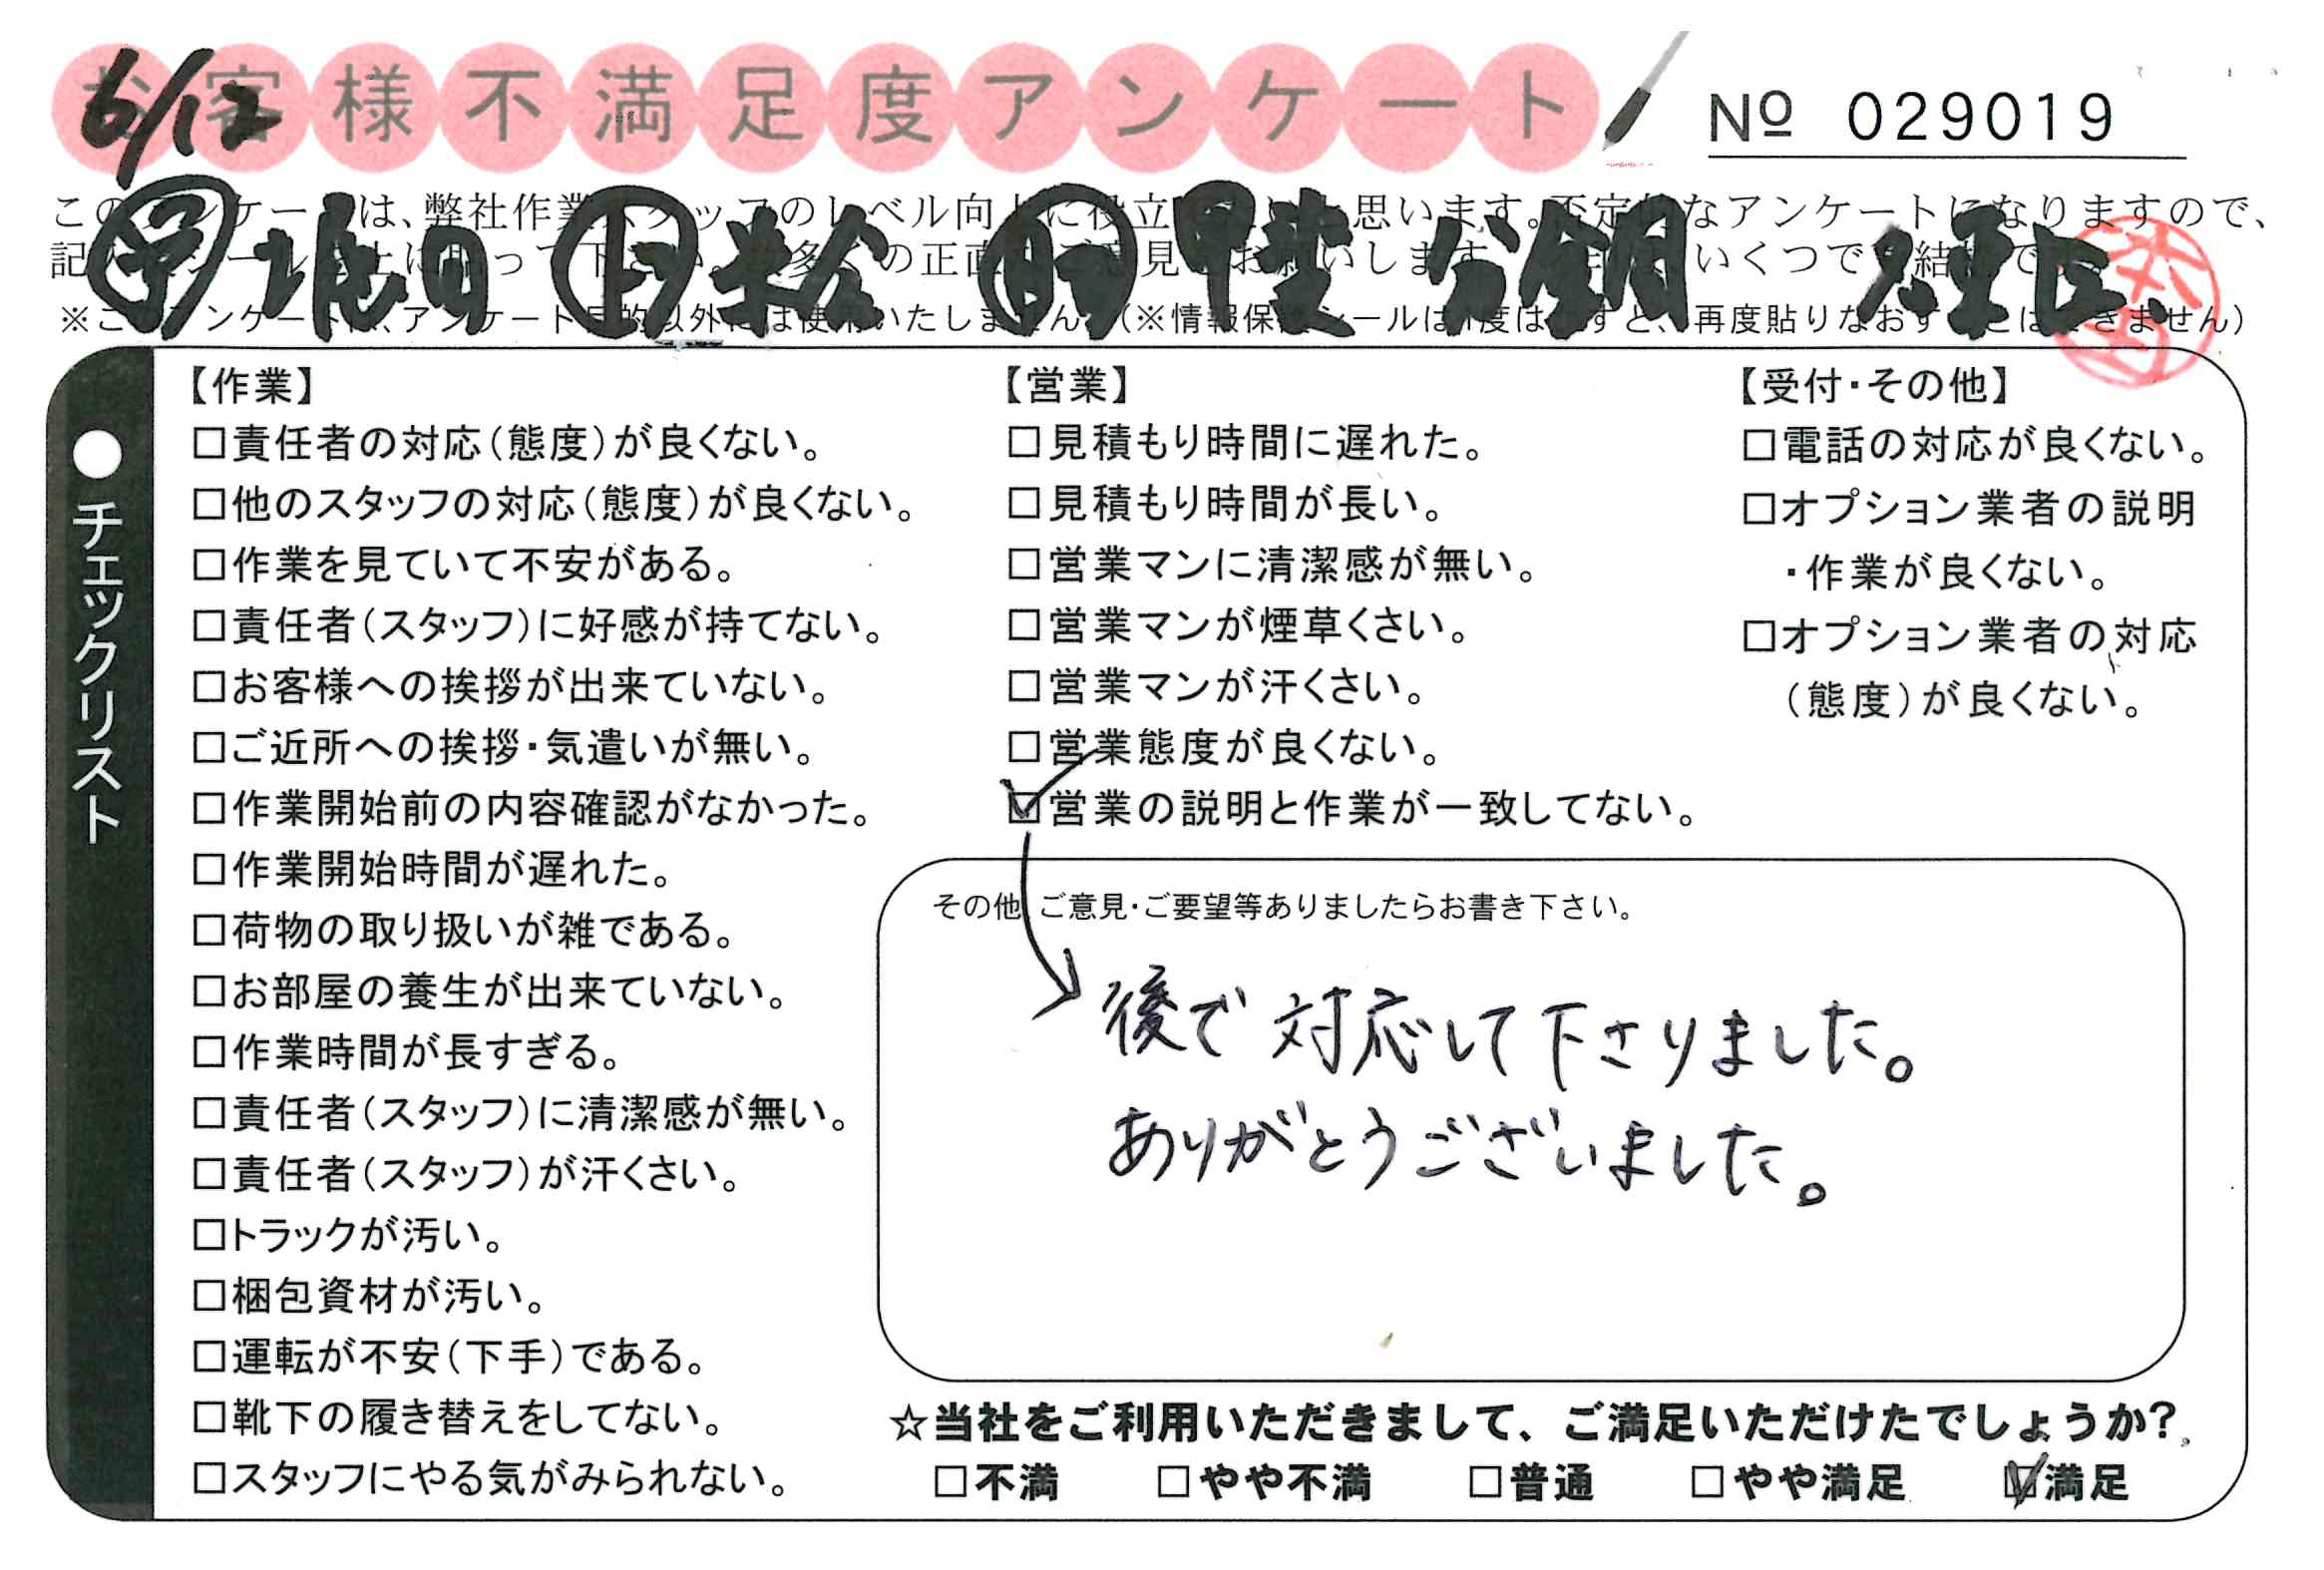 お客様不満足度アンケート
6/12
No 029019
このアンケートは、弊社作業スタッフのレベル向上に役立てたいと思います。不定期なアンケートになりますので、
※このアンケートは、アンケート目的以外には使用いたしません。(※情報保護シールは1度はがすと、再度貼りなおすことはできません)
●チェックリスト
【作業】
□責任者の対応(態度)が良くない。
□他のスタッフの対応(態度)が良くない。
□作業を見ていて不安がある。
□責任者(スタッフ)に好感が持てない。
□お客様への挨拶が出来ていない。
□ご近所への挨拶・気遣いが無い。
□作業開始前の内容確認がなかった。
□作業開始時間が遅れた。
□荷物の取り扱いが雑である。
□お部屋の養生が出来ていない。
□作業時間が長すぎる。
□責任者(スタッフ)に清潔感が無い。
□責任者(スタッフ)が汗くさい。
□トラックが汚い。
□梱包資材が汚い。
□運転が不安(下手)である。
□靴下の履き替えをしてない。
□スタッフにやる気がみられない。
【営業】
□見積もり時間に遅れた。
□見積もり時間が長い。
□営業マンに清潔感が無い。
□営業マンが煙草くさい。
□営業マンが汗くさい。
□営業態度が良くない。
☑営業の説明と作業が一致してない。
【受付・その他】
□電話の対応が良くない。
□オプション業者の説明
・作業が良くない。
□オプション業者の対応
(態度)が良くない。
その他、ご意見・ご要望等ありましたらお書き下さい。
後で対応して下さりました。
ありがとうございました。
☆当社をご利用いただきまして、ご満足いただけたでしょうか?
□不満 □やや不満 □普通 □やや満足 ☑満足